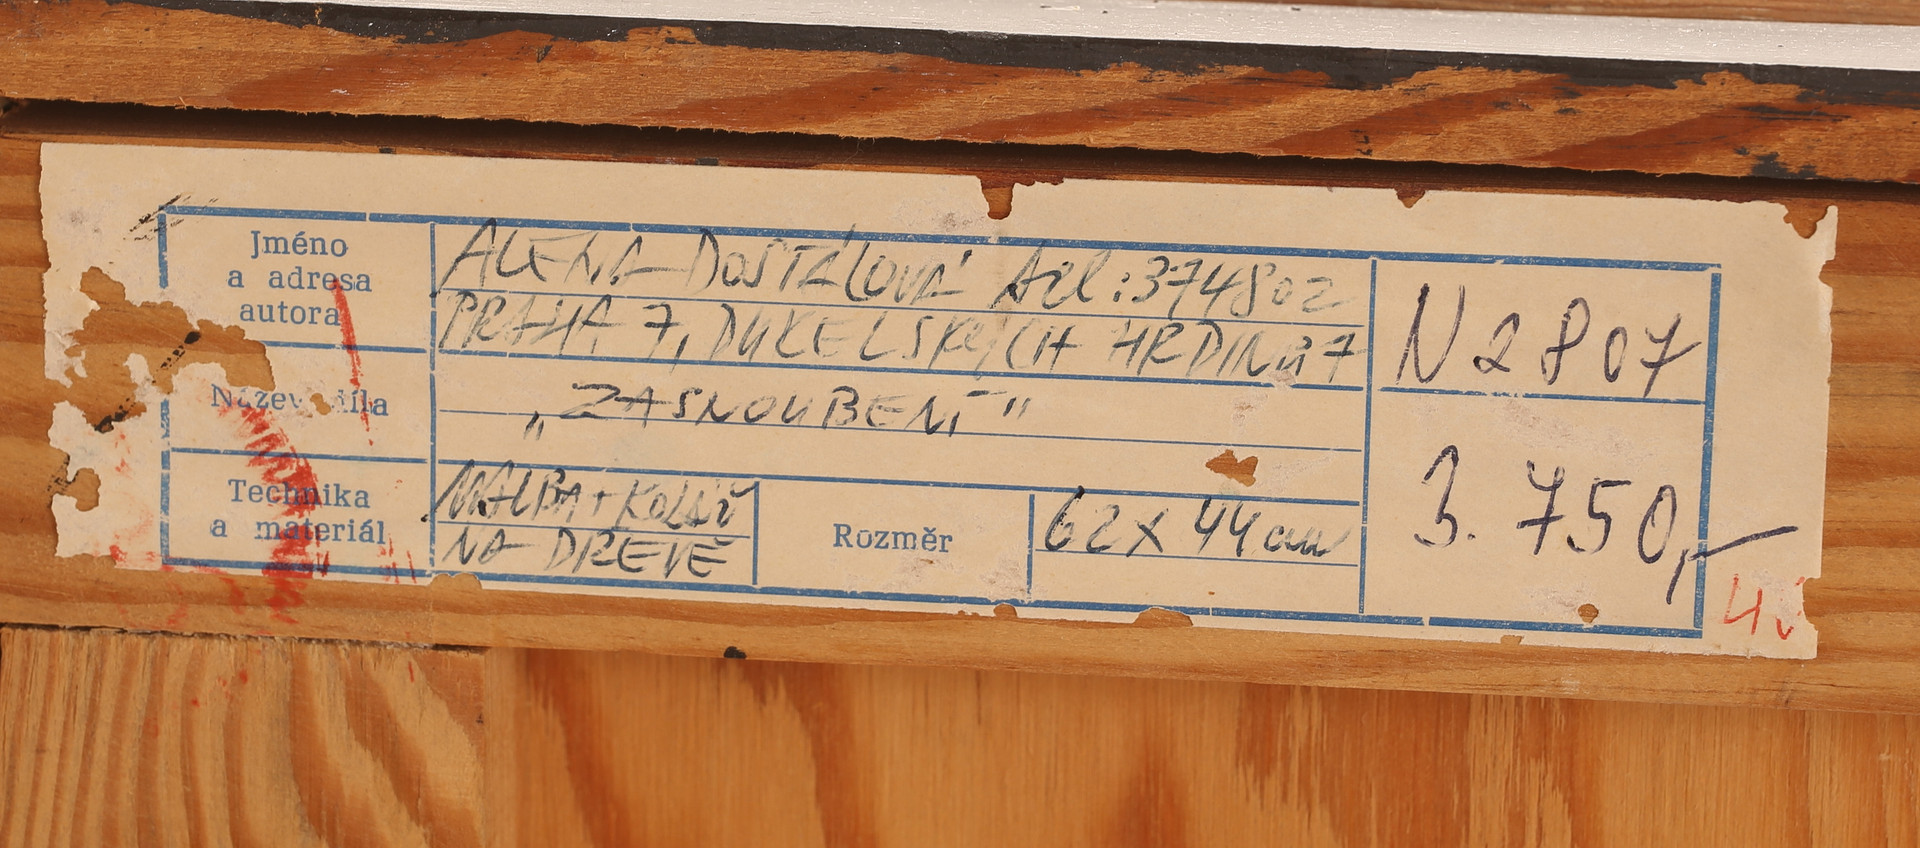 Jméno
a adresa
autora
ALENA DOSTÁLOVÁ tel: 374802
PRAHA 7, DUKELSKÝCH HRDINŮ 7
N 2807
Název díla
„ZASNOUBENÍ"
Technika
a materiál
MALBA + KOLÁŽ
NA DŘEVĚ
Rozměr
62 x 44 cm
3.750,-